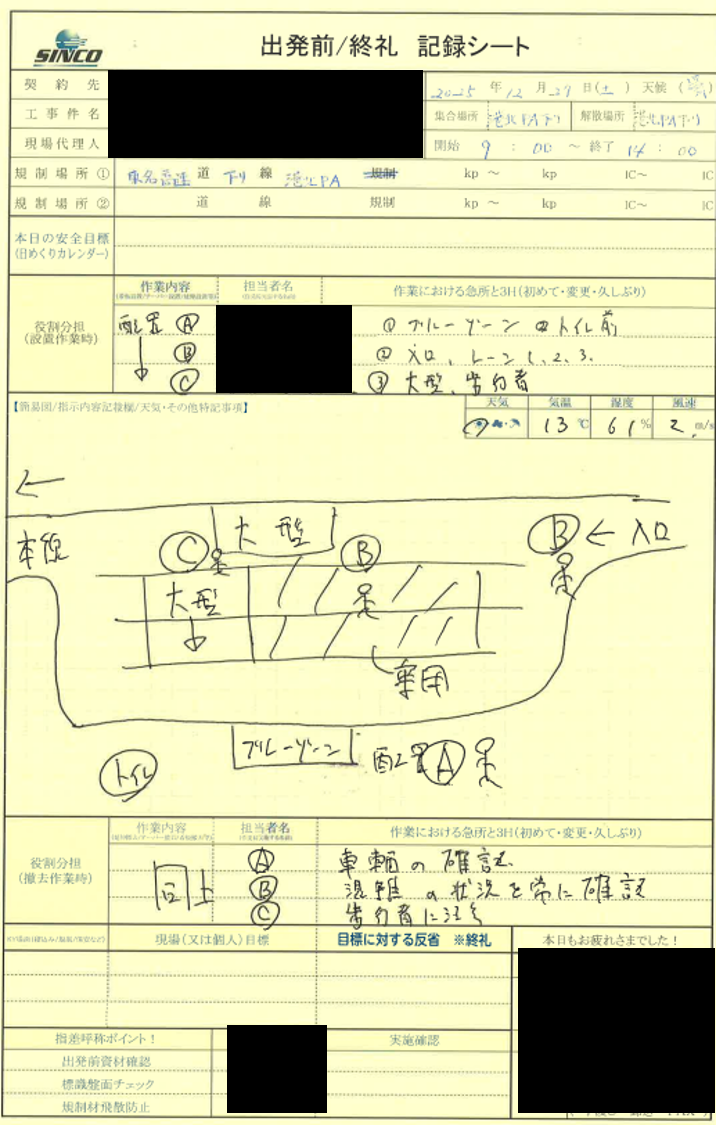 SINCO
出発前/終礼 記録シート
契約先
2025年12月27日(土) 天候(晴)
工事件名
集合場所 港北PA下り 解散場所 港北PA下り
現場代理人
開始 9:00 ～ 終了 14:00
規制場所① 東名高速 道 下り 線 港北PA 規制 kp ～ kp IC～ IC
規制場所② 道 線 規制 kp ～ kp IC～ IC
本日の安全目標
(日めくりカレンダー)
役割分担
(設置作業時)
作業内容 担当者名 作業における急所と3H(初めて・変更・久しぶり)
配置 Ⓐ ① ブルーゾーン トイレ前
Ⓑ ② 入口、レーン1、2、3.
Ⓒ ③ 大型、歩行者
【簡易図/指示内容記載欄/天気・その他特記事項】
天気 気温 湿度 風速
13℃ 61% 2. m/s
←
本線 Ⓒ 大型 Ⓑ Ⓑ ← 入口
大型
乗用
ブルーゾーン 配置Ⓐ
トイレ
役割分担
(撤去作業時)
作業内容 担当者名 作業における急所と3H(初めて・変更・久しぶり)
同上 Ⓐ 車輌の確認
Ⓑ 混雑の状況を常に確認
Ⓒ 歩行者に注意
現場(又は個人)目標 目標に対する反省 ※終礼 本日もお疲れさまでした！
指差呼称ポイント！ 実施確認
出発前資材確認
標識盤面チェック
規制材飛散防止